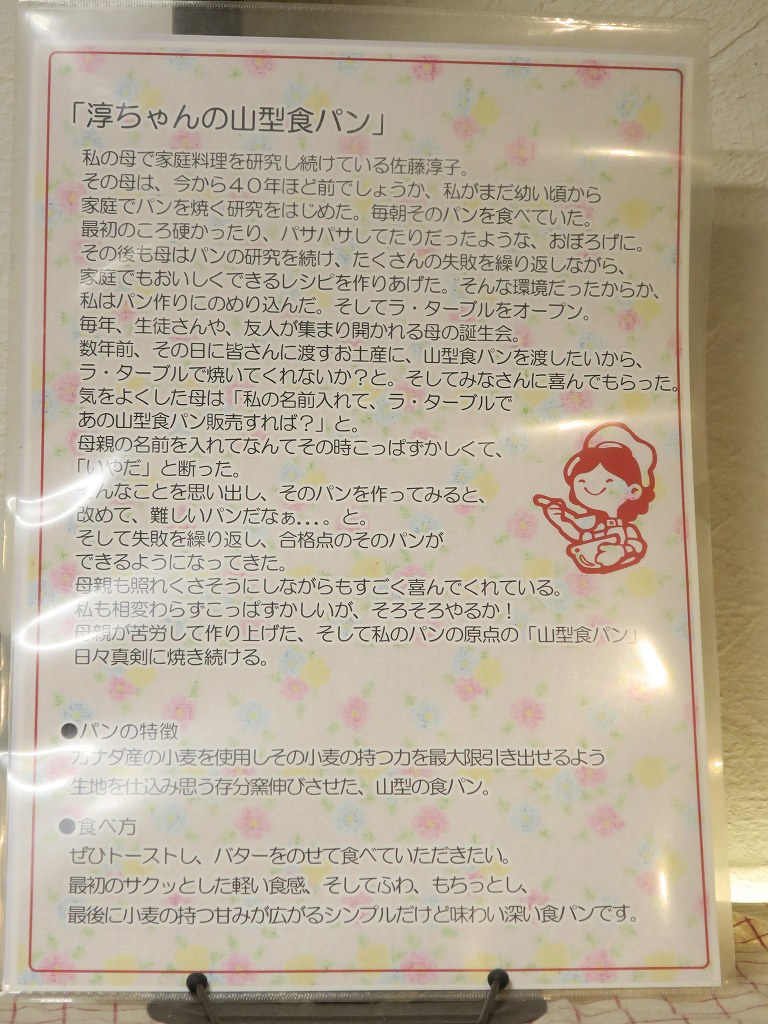 「淳ちゃんの山型食パン」
私の母で家庭料理を研究し続けている佐藤淳子。
その母は、今から４０年ほど前でしょうか、私がまだ幼い頃から
家庭でパンを焼く研究をはじめた。毎朝そのパンを食べていた。
最初のころ硬かったり、パサパサしてたりだったような、おぼろげに。
その後も母はパンの研究を続け、たくさんの失敗を繰り返しながら、
家庭でもおいしくできるレシピを作りあげた。そんな環境だったからか、
私はパン作りにのめり込んだ。そしてラ・ターブルをオープン。
毎年、生徒さんや、友人が集まり開かれる母の誕生会。
数年前、その日に皆さんに渡すお土産に、山型食パンを渡したいから、
ラ・ターブルで焼いてくれないか？と。そしてみなさんに喜んでもらった。
気をよくした母は「私の名前入れて、ラ・ターブルで
あの山型食パン販売すれば？」と。
母親の名前を入れてなんてその時こっぱずかしくて、
「いやだ」と断った。
そんなことを思い出し、そのパンを作ってみると、
改めて、難しいパンだなぁ...。と。
そして失敗を繰り返し、合格点のそのパンが
できるようになってきた。
母親も照れくさそうにしながらもすごく喜んでくれている。
私も相変わらずこっぱずかしいが、そろそろやるか！
母親が苦労して作り上げた、そして私のパンの原点の「山型食パン」
日々真剣に焼き続ける。
●パンの特徴
カナダ産の小麦を使用しその小麦の持つ力を最大限引き出せるよう
生地を仕込み思う存分窯伸びさせた、山型の食パン。
●食べ方
ぜひトーストし、バターをのせて食べていただきたい。
最初のサクッとした軽い食感、そしてふわ、もちっとし、
最後に小麦の持つ甘みが広がるシンプルだけど味わい深い食パンです。